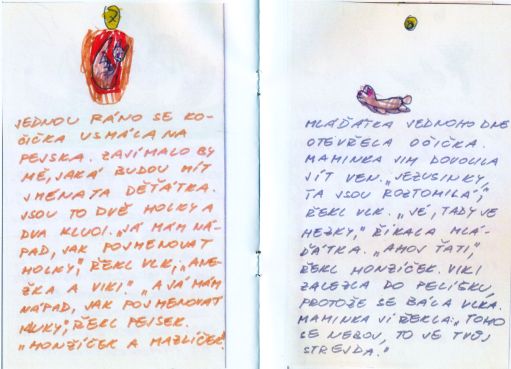 JEDNOU RÁNO SE KO-
ČIČKA USMÁLA NA
PEJSKA. ZAJÍMALO BY
MĚ, JAKÁ BUDOU MÍT
JMÉNA TA DĚŤÁTKA.
JSOU TO DVĚ HOLKY A
DVA KLUCI. „JÁ MÁM NÁ-
PAD, JAK POJMENOVAT
HOLKY," ŘEKL VLK, „ANE-
ŽKA A VIKI." „A JÁ MÁM
NÁPAD, JAK POJMENOVAT
KLUKY," ŘEKL PEJSEK.
„HONZÍČEK A MAZLÍČEK."
MLÁĎÁTKA JEDNOHO DNE
OTEVŘELA OČIČKA.
MAMINKA JIM DOVOLILA
JÍT VEN. „JEŽUSINKY,
TA JSOU ROZTOMILÁ,"
ŘEKL VLK. „JÉ, TADY JE
HEZKY," ŘÍKALA MLÁ-
ĎÁTKA. „AHOJ TATI,"
ŘEKL HONZÍČEK. VIKI
ZALEZLA DO PELÍŠKU,
PROTOŽE SE BÁLA VLKA.
MAMINKA JÍ ŘEKLA: „TOHO
SE NEBOJ, TO JE TVŮJ
STREJDA."